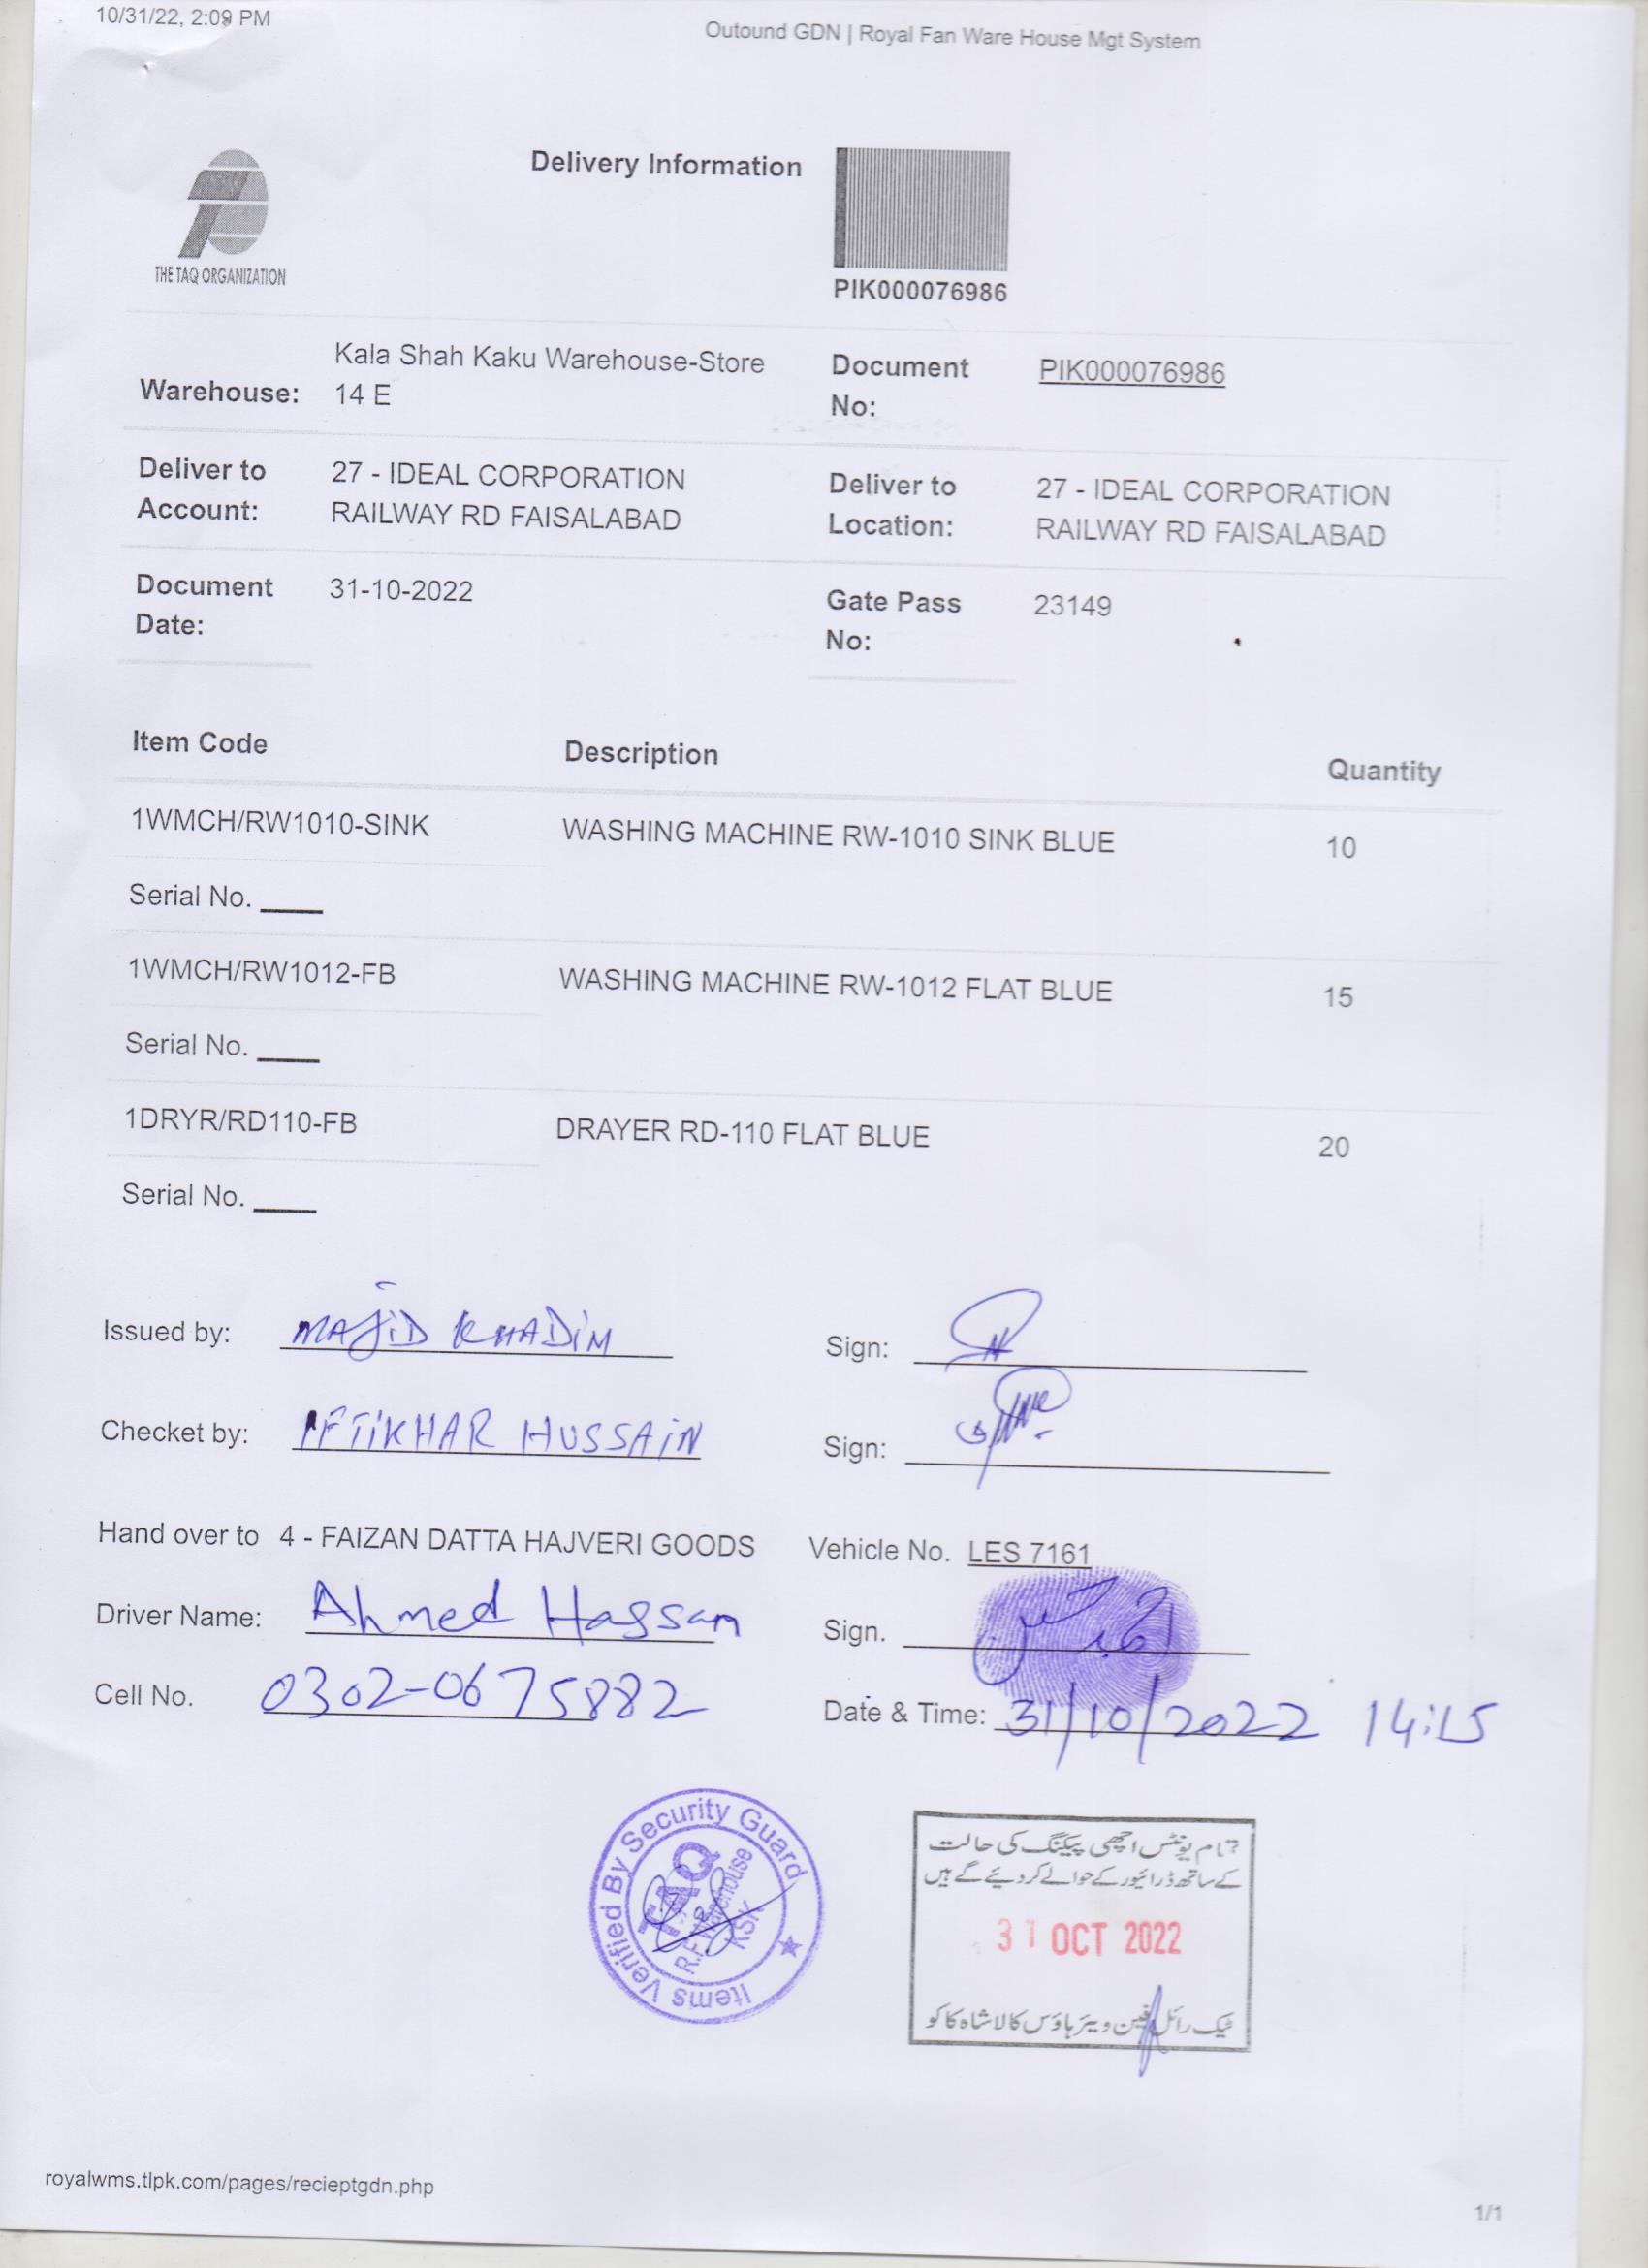 10/31/22, 2:09 PM
Outound GDN | Royal Fan Ware House Mgt System
Delivery Information
THE TAQ ORGANIZATION
PIK000076986
Kala Shah Kaku Warehouse-Store
Warehouse: 14 E
Document No: PIK000076986
Deliver to Account: 27 - IDEAL CORPORATION
RAILWAY RD FAISALABAD
Deliver to Location: 27 - IDEAL CORPORATION
RAILWAY RD FAISALABAD
Document Date: 31-10-2022
Gate Pass No: 23149
Item Code Description Quantity
1WMCH/RW1010-SINK WASHING MACHINE RW-1010 SINK BLUE 10
Serial No. ____
1WMCH/RW1012-FB WASHING MACHINE RW-1012 FLAT BLUE 15
Serial No. ____
1DRYR/RD110-FB DRAYER RD-110 FLAT BLUE 20
Serial No. ____
Issued by: MAJID KHADIM Sign:
Checket by: IFTIKHAR HUSSAIN Sign:
Hand over to 4 - FAIZAN DATTA HAJVERI GOODS Vehicle No. LES 7161
Driver Name: Ahmed Hassan Sign.
Cell No. 0302-0675882 Date & Time: 31/10/2022 14:15
Items Verified By Security Guard
TAQ
R.F Warehouse
KSK
تمام یونٹس اچھی پیکنگ کی حالت
کے ساتھ ڈرائیور کے حوالے کر دیئے گے ہیں
31 OCT 2022
ٹیک رائل فین ویئر ہاؤس کالا شاہ کاکو
royalwms.tlpk.com/pages/recieptgdn.php
1/1